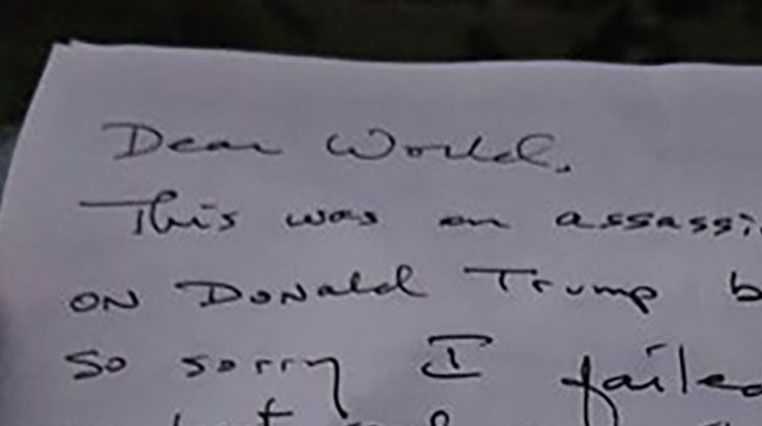 Dear World,
This was an assassi
on Donald Trump b
so sorry I failed